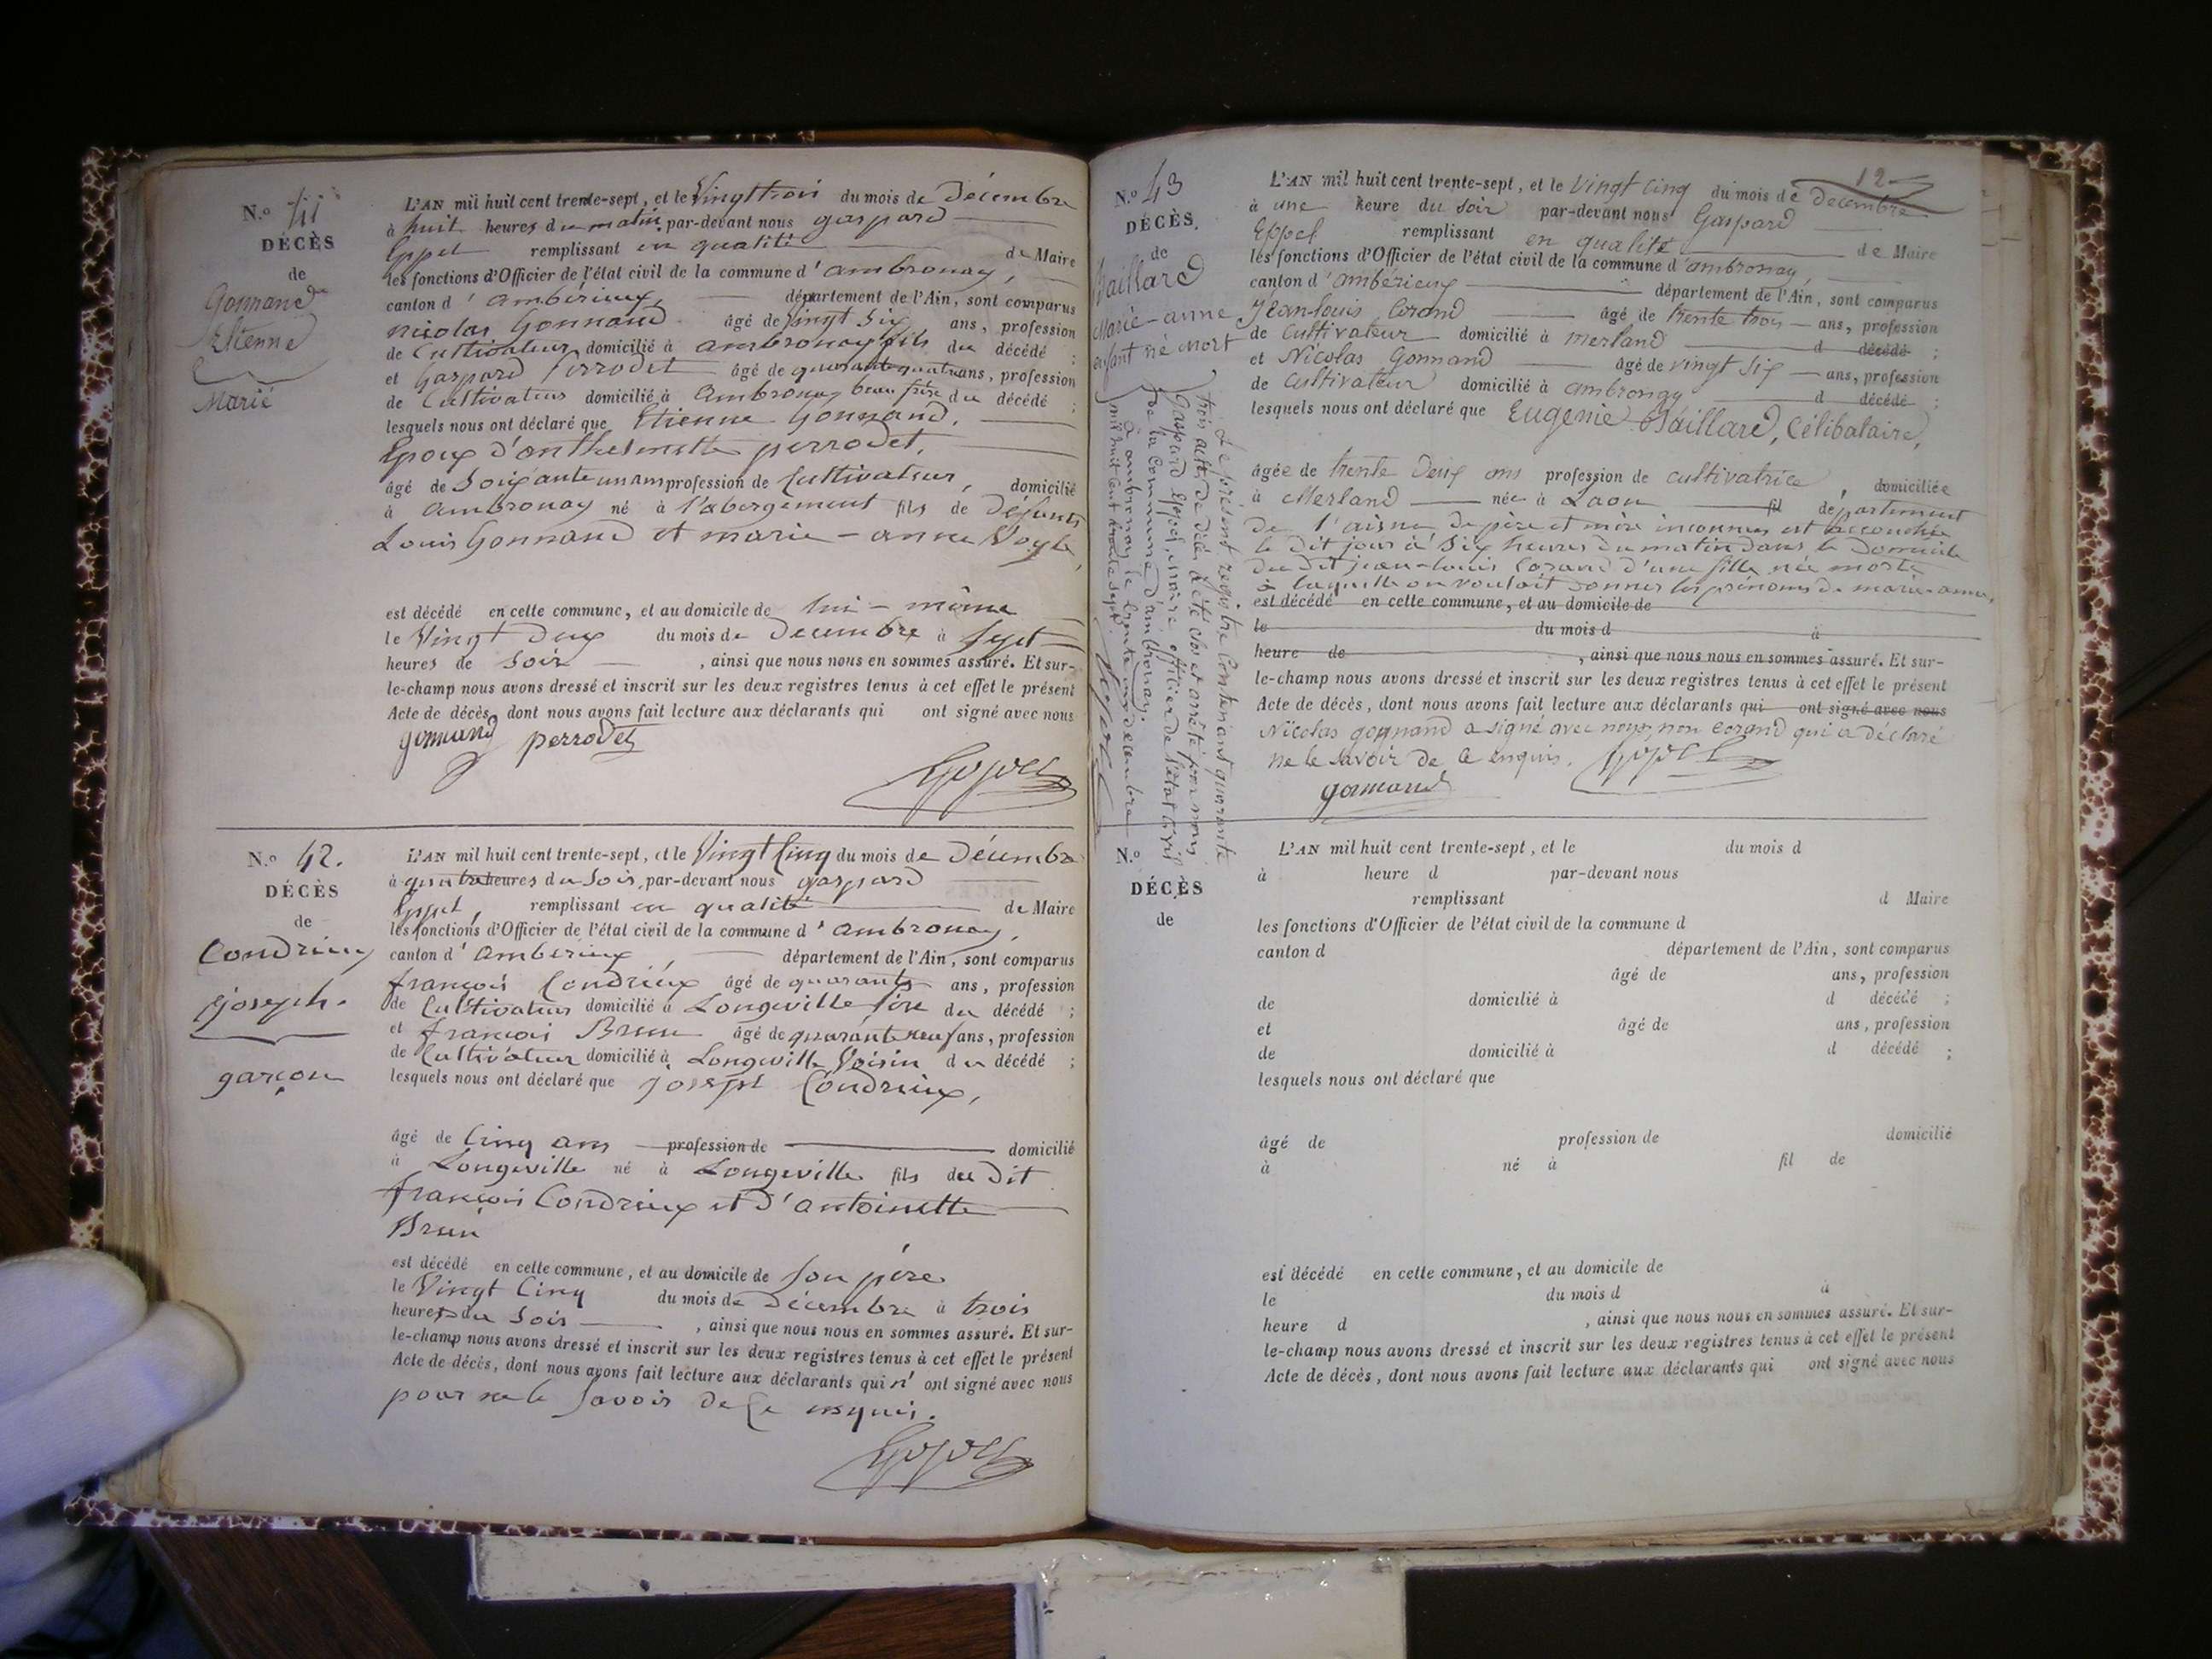 N.o 41
DÉCÈS
de
Gonnand
Etienne
Marié
L'AN mil huit cent trente-sept, et le Vingt trois du mois de Décembre
à huit heures du matin, par-devant nous gaspard
Eppel remplissant en qualité de Maire
les fonctions d'Officier de l'état civil de la commune d'ambronay,
canton d'ambérieux, département de l'Ain, sont comparus
nicolas Gonnand âgé de Vingt Six ans, profession
de Cultivateur domicilié à ambronay fils du décédé ;
et Gaspard Perrodet âgé de quarante quatre ans, profession
de Cultivateur domicilié à Ambronay beau frère du décédé ;
lesquels nous ont déclaré que Etienne Gonnand,
Epoux d'anthelmette perrodet,
âgé de Soixante un ans profession de Cultivateur, domicilié
à ambronay né à l'abergement fils de Défunts
Louis Gonnand et marie-anne
est décédé en cette commune, et au domicile de lui-même
le Vingt Deux du mois de Decembre à Sept
heures de Soir, ainsi que nous nous en sommes assuré. Et sur-
le-champ nous avons dressé et inscrit sur les deux registres tenus à cet effet le présent
Acte de décès, dont nous avons fait lecture aux déclarants qui ont signé avec nous
gonnand perrodet
Eppel
N.o 42.
DÉCÈS
de
Condrieux
joseph.
garçon
L'AN mil huit cent trente-sept, et le Vingt Cinq du mois de Décembre
à quatre heures du Soir, par-devant nous gaspard
Eppel, remplissant en qualité de Maire
les fonctions d'Officier de l'état civil de la commune d'ambronay,
canton d'ambérieux, département de l'Ain, sont comparus
françois Condrieux âgé de quarante ans, profession
de Cultivateur domicilié à Longeville père du décédé ;
et françois Brun âgé de quarante neuf ans, profession
de Cultivateur domicilié à Longeville Voisin du décédé ;
lesquels nous ont déclaré que joseph Condrieux,
âgé de Cinq ans profession de domicilié
à Longeville né à Longeville fils du Dit
françois Condrieux et d'antoinette
Brun
est décédé en cette commune, et au domicile de Son père
le Vingt Cinq du mois de Décembre à trois
heures du Soir, ainsi que nous nous en sommes assuré. Et sur-
le-champ nous avons dressé et inscrit sur les deux registres tenus à cet effet le présent
Acte de décès, dont nous avons fait lecture aux déclarants qui n'ont signé avec nous
pour ne le Savoir de Ce enquis.
Eppel
12
N.o 43
DÉCÈS.
de
Baillard
Marie-anne
enfant né mort
Le présent registre Contenant quarante
trois actes de décès a été clos et arrêté par nous
Gaspard Eppel, maire officier de l'état Civil
de la Commune d'ambronay.
à ambronay le trente un decembre
mil huit cent trente Sept.
Eppel
L'AN mil huit cent trente-sept, et le Vingt Cinq du mois de Décembre
à une heure du soir par-devant nous Gaspard
Eppel remplissant en qualité de Maire
les fonctions d'Officier de l'état civil de la commune d'ambronay,
canton d'ambérieux département de l'Ain, sont comparus
Jean-Louis Corand âgé de trente trois ans, profession
de Cultivateur domicilié à Merland d décédé ;
et Nicolas Gonnand âgé de vingt six ans, profession
de Cultivateur domicilié à ambronay d décédé ;
lesquels nous ont déclaré que Eugenie Baillard, Célibataire,
âgée de trente Deux ans profession de cultivatrice, domiciliée
à Merland née à Laon fil département
de l'aisne de père et mère inconnus est accouchée
le Dit jour à Six heures du matin dans le Domicile
du dit jean-louis Corand d'une fille née morte
à laquelle on voulait donner les prénoms de marie-anne,
est décédé en cette commune, et au domicile de
le du mois d à
heure de , ainsi que nous nous en sommes assuré. Et sur-
le-champ nous avons dressé et inscrit sur les deux registres tenus à cet effet le présent
Acte de décès, dont nous avons fait lecture aux déclarants qui ont signé avec nous
Nicolas gonnand a signé avec nous, non corand qui a déclaré
ne le savoir de Ce enquis. Eppel
gonnand
N.o
DÉCÈS
de
L'AN mil huit cent trente-sept, et le du mois d
à heure d par-devant nous
remplissant d Maire
les fonctions d'Officier de l'état civil de la commune d
canton d département de l'Ain, sont comparus
âgé de ans, profession
de domicilié à d décédé ;
et âgé de ans, profession
de domicilié à d décédé ;
lesquels nous ont déclaré que
âgé de profession de domicilié
à né à fil de
est décédé en cette commune, et au domicile de
le du mois d à
heure d , ainsi que nous nous en sommes assuré. Et sur-
le-champ nous avons dressé et inscrit sur les deux registres tenus à cet effet le présent
Acte de décès, dont nous avons fait lecture aux déclarants qui ont signé avec nous